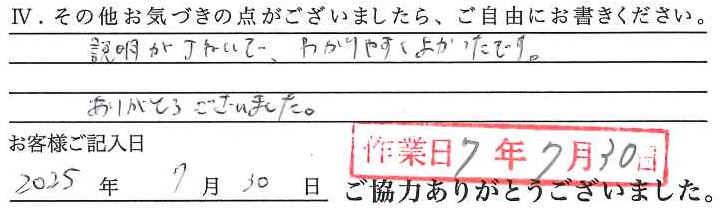 Ⅳ．その他お気づきの点がございましたら、ご自由にお書きください。
説明がていねいで、わかりやすくよかったです。
ありがとうございました。
お客様ご記入日
作業日7年7月30日
2025年 7月 30日
ご協力ありがとうございました。